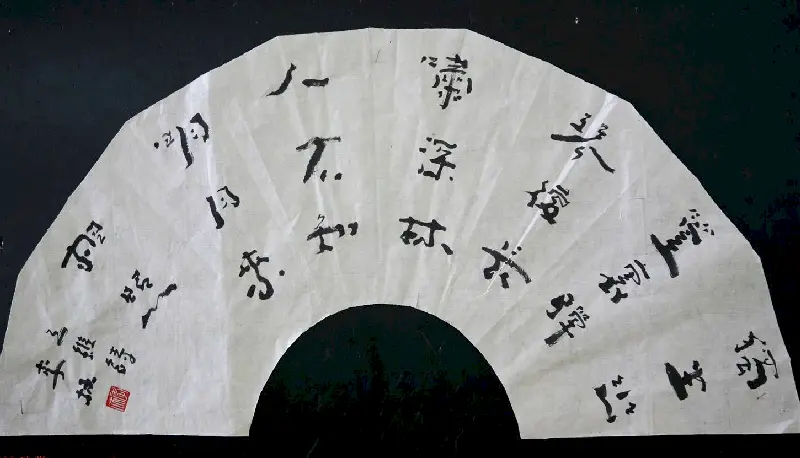 獨坐幽
篁裏彈
琴復長
嘯深林
人不知
明月來
相照
王維詩